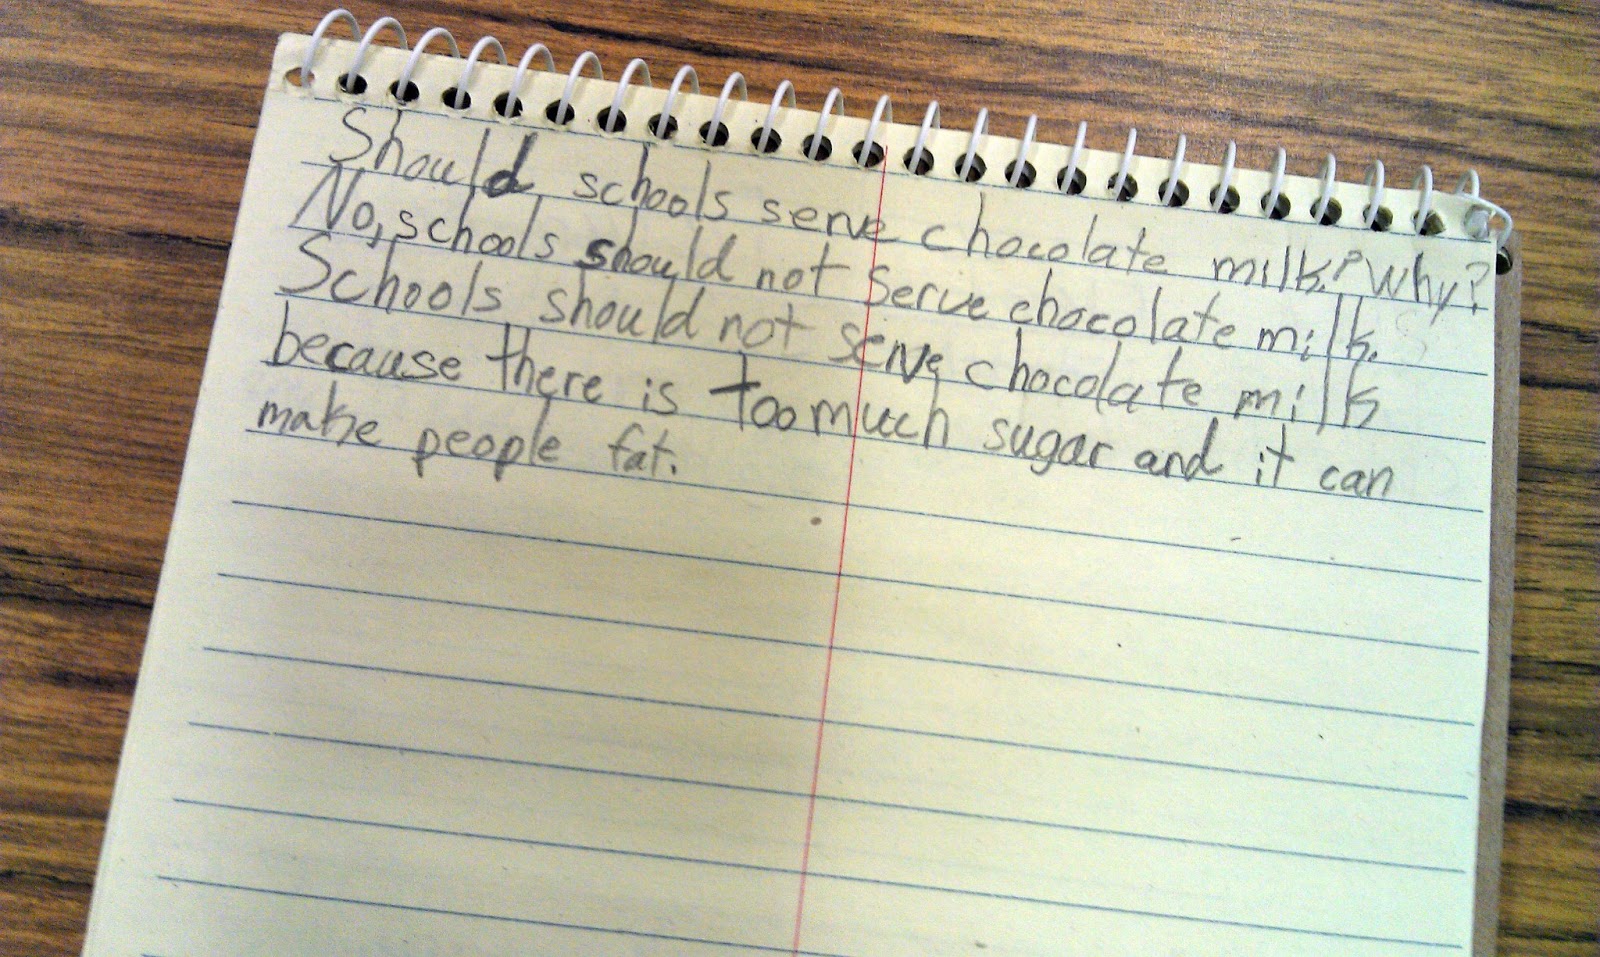 Should schools serve chocolate milk? Why?
No, schools should not serve chocolate milk.
Schools should not serve chocolate milk
because there is too much sugar and it can
make people fat.